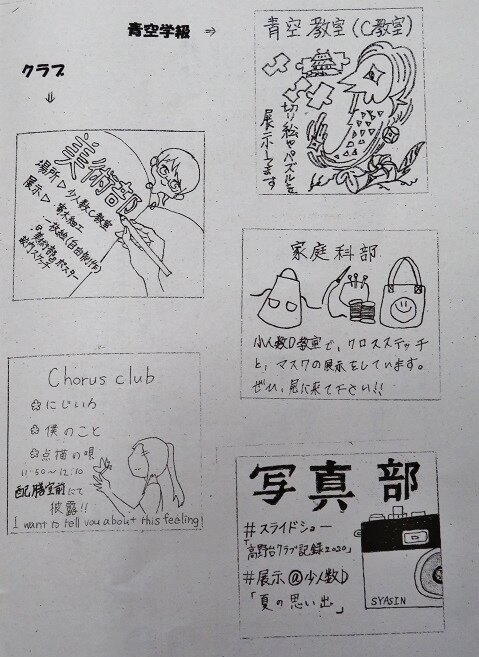 青空学級 ⇒
クラブ
⇓
青空教室(C教室)
切り絵やパズルを
展示してます
美術部
場所▷少人数C教室
展示▷
一枚絵(自由制作)
校内スケッチ
家庭科部
少人数D教室で、クロスステッチ
と、マスクの展示をしています。
ぜひ、見に来て下さい!!
Chorus club
にじいろ
僕のこと
点描の唄
11:50~12:10
配膳室前にて
披露!!
I want to tell you about this feeling!
写真部
#スライドショー
「高野台クラブ記録2020」
#展示@少人数D
「夏の思い出」
SYASIN